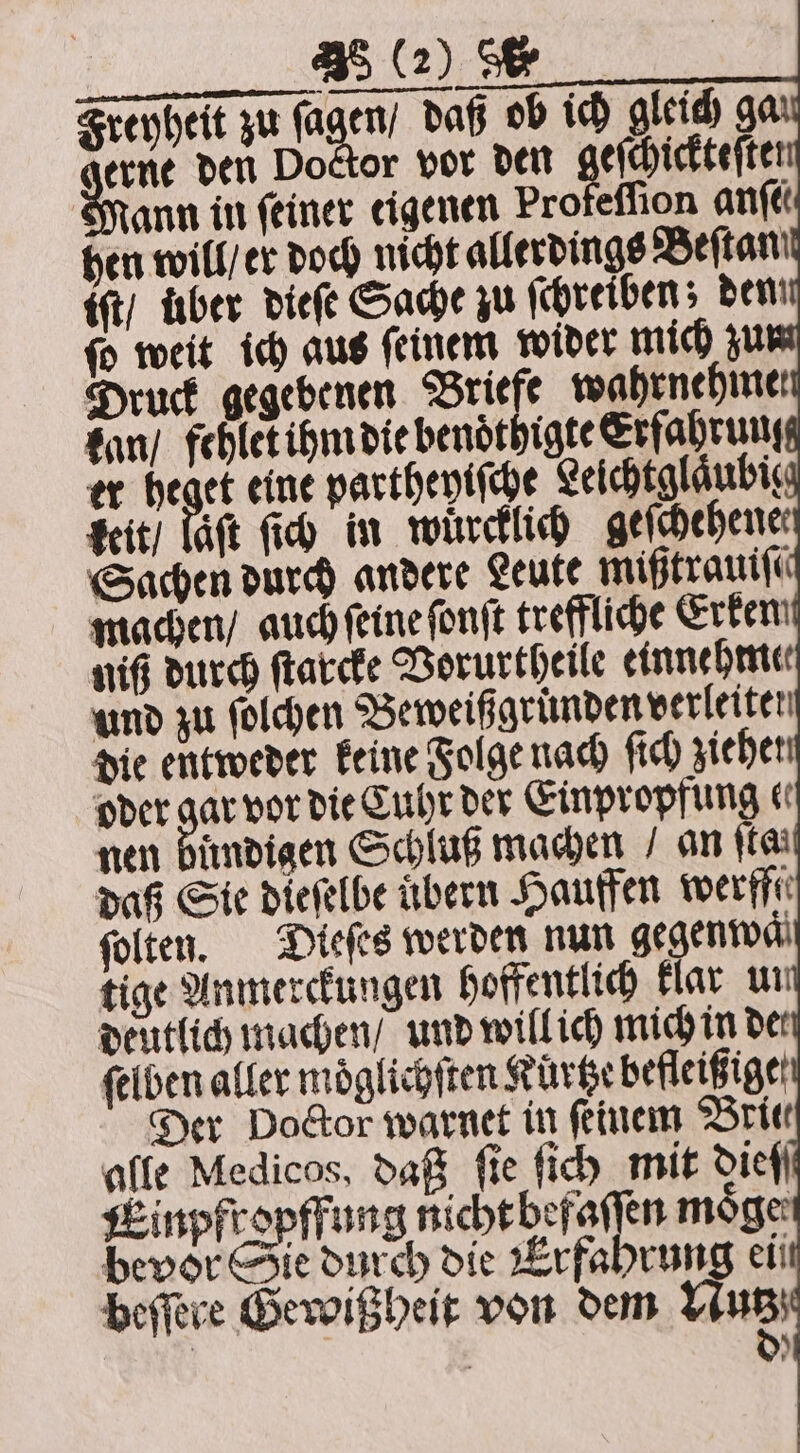 (2)
Freyheit zu ſagen/ daß ob ich gleich gan
gerne den Doctor vor den geſchickteſten
Mann in ſeiner eigenen Profeſſion anſe
hen will/ er doch nicht allerdings Beſtan
iſt/ uͤber dieſe Sache zu ſchreiben; denn
ſo weit ich aus ſeinem wider mich zum
Druck gegebenen Briefe wahrnehmen
kan/ fehlet ihm die benoͤthigte Erfahrung
er heget eine partheyiſche Leichtglaͤubig
keit/ laͤſt ſich in wuͤrcklich geſchehenen
Sachen durch andere Leute mißtrauiſch
machen/ auch ſeine ſonſt treffliche Erken
niß durch ſtarcke Vorurtheile einnehmen
und zu ſolchen Beweißgruͤnden verleiten
die entweder keine Folge nach ſich ziehen
oder gar vor die Cuhr der Einpropfung ei
nen buͤndigen Schluß machen / an ſta
daß Sie dieſelbe uͤbern Hauffen werffen
ſolten. Dieſes werden nun gegenwaͤr
tige Anmerckungen hoffentlich klar un
deutlich machen/ und will ich mich in den
ſelben aller moͤglichſten Kuͤrtze befleißigen
Der Doctor warnet in ſeinem Brie
alle Medicos, daß ſie ſich mit dieſ
Einpfropffung nicht befaſſen moͤgen
bevor Sie durch die Erfahrung ein
beſſere Gewißheit von dem Nutz